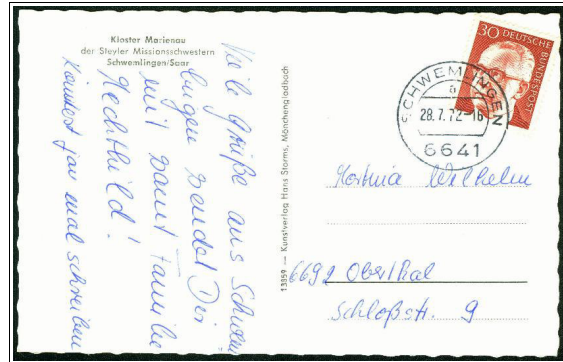 Kloster Marienau
der Steyler Missionsschwestern
Schwemlingen/Saar
Viele Grüße aus Schwem
lingen sendet Dir
mit samt Familie
Mechthild!
Kannst ja mal schreiben
13159 — Kunstverlag Hans Storms, Mönchengladbach
30 DEUTSCHE BUNDESPOST
SCHWEMLINGEN
a
28.7.72-16
6641
Wilhelm
6692 Oberthal
Schloßstr. 9